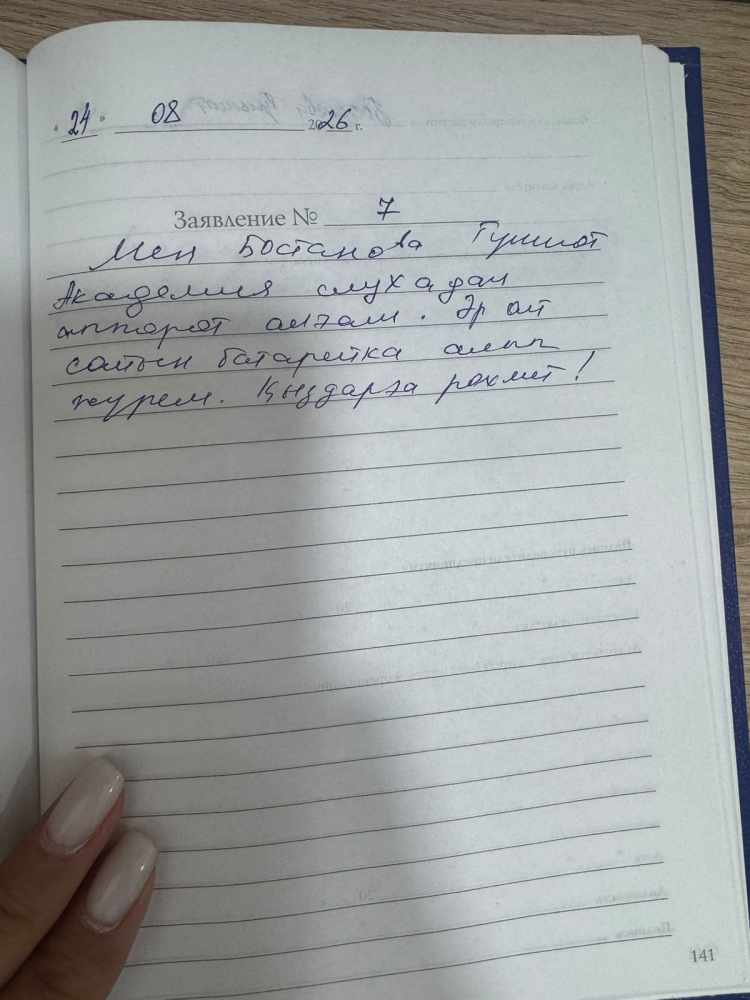 "24" 08 2026 г.
Заявление № 7
Мен Бостанова Гулшот
Академия слухадан
аппорот алгам. Эр ай
сайын батарейка алып
журем. Қыздарга рахмет!
141